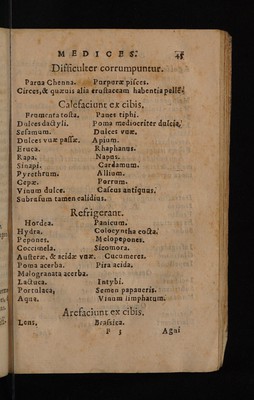 MEDICES. 45
Difficulter corrumpuntur.
Parua Chenna. Purpuræ pisces.
Circes, & quæuis alia crustaceam habentia pellē.
Calefaciunt ex cibis.
Frumenta tosta. Panes tiphi.
Dulces dactyli. Poma mediocriter dulcia.
Sesamum. Dulces vuæ.
Dulces vuæ passæ. Apium.
Eruca. Rhaphanus.
Rapa. Napus.
Sinapi. Cardamum.
Pyrethrum. Allium.
Cepæ. Porrum.
Vinum dulce. Caseus antiquus.
Subrufum tamen calidius.
Refrigerant.
Hordea. Panicum.
Hydra. Colocyntha cocta.
Pepones. Melopepones.
Coccimela. Sicomora.
Austeræ, & acidæ vuæ. Cucumeres.
Poma acerba. Pira acida.
Malogranata acerba.
Lactuca. Intybi.
Portulaca, Semen papaueris.
Aqua. Vinum limphatum.
Arefaciunt ex cibis.
Lens, Brassica.
P 3 Agni